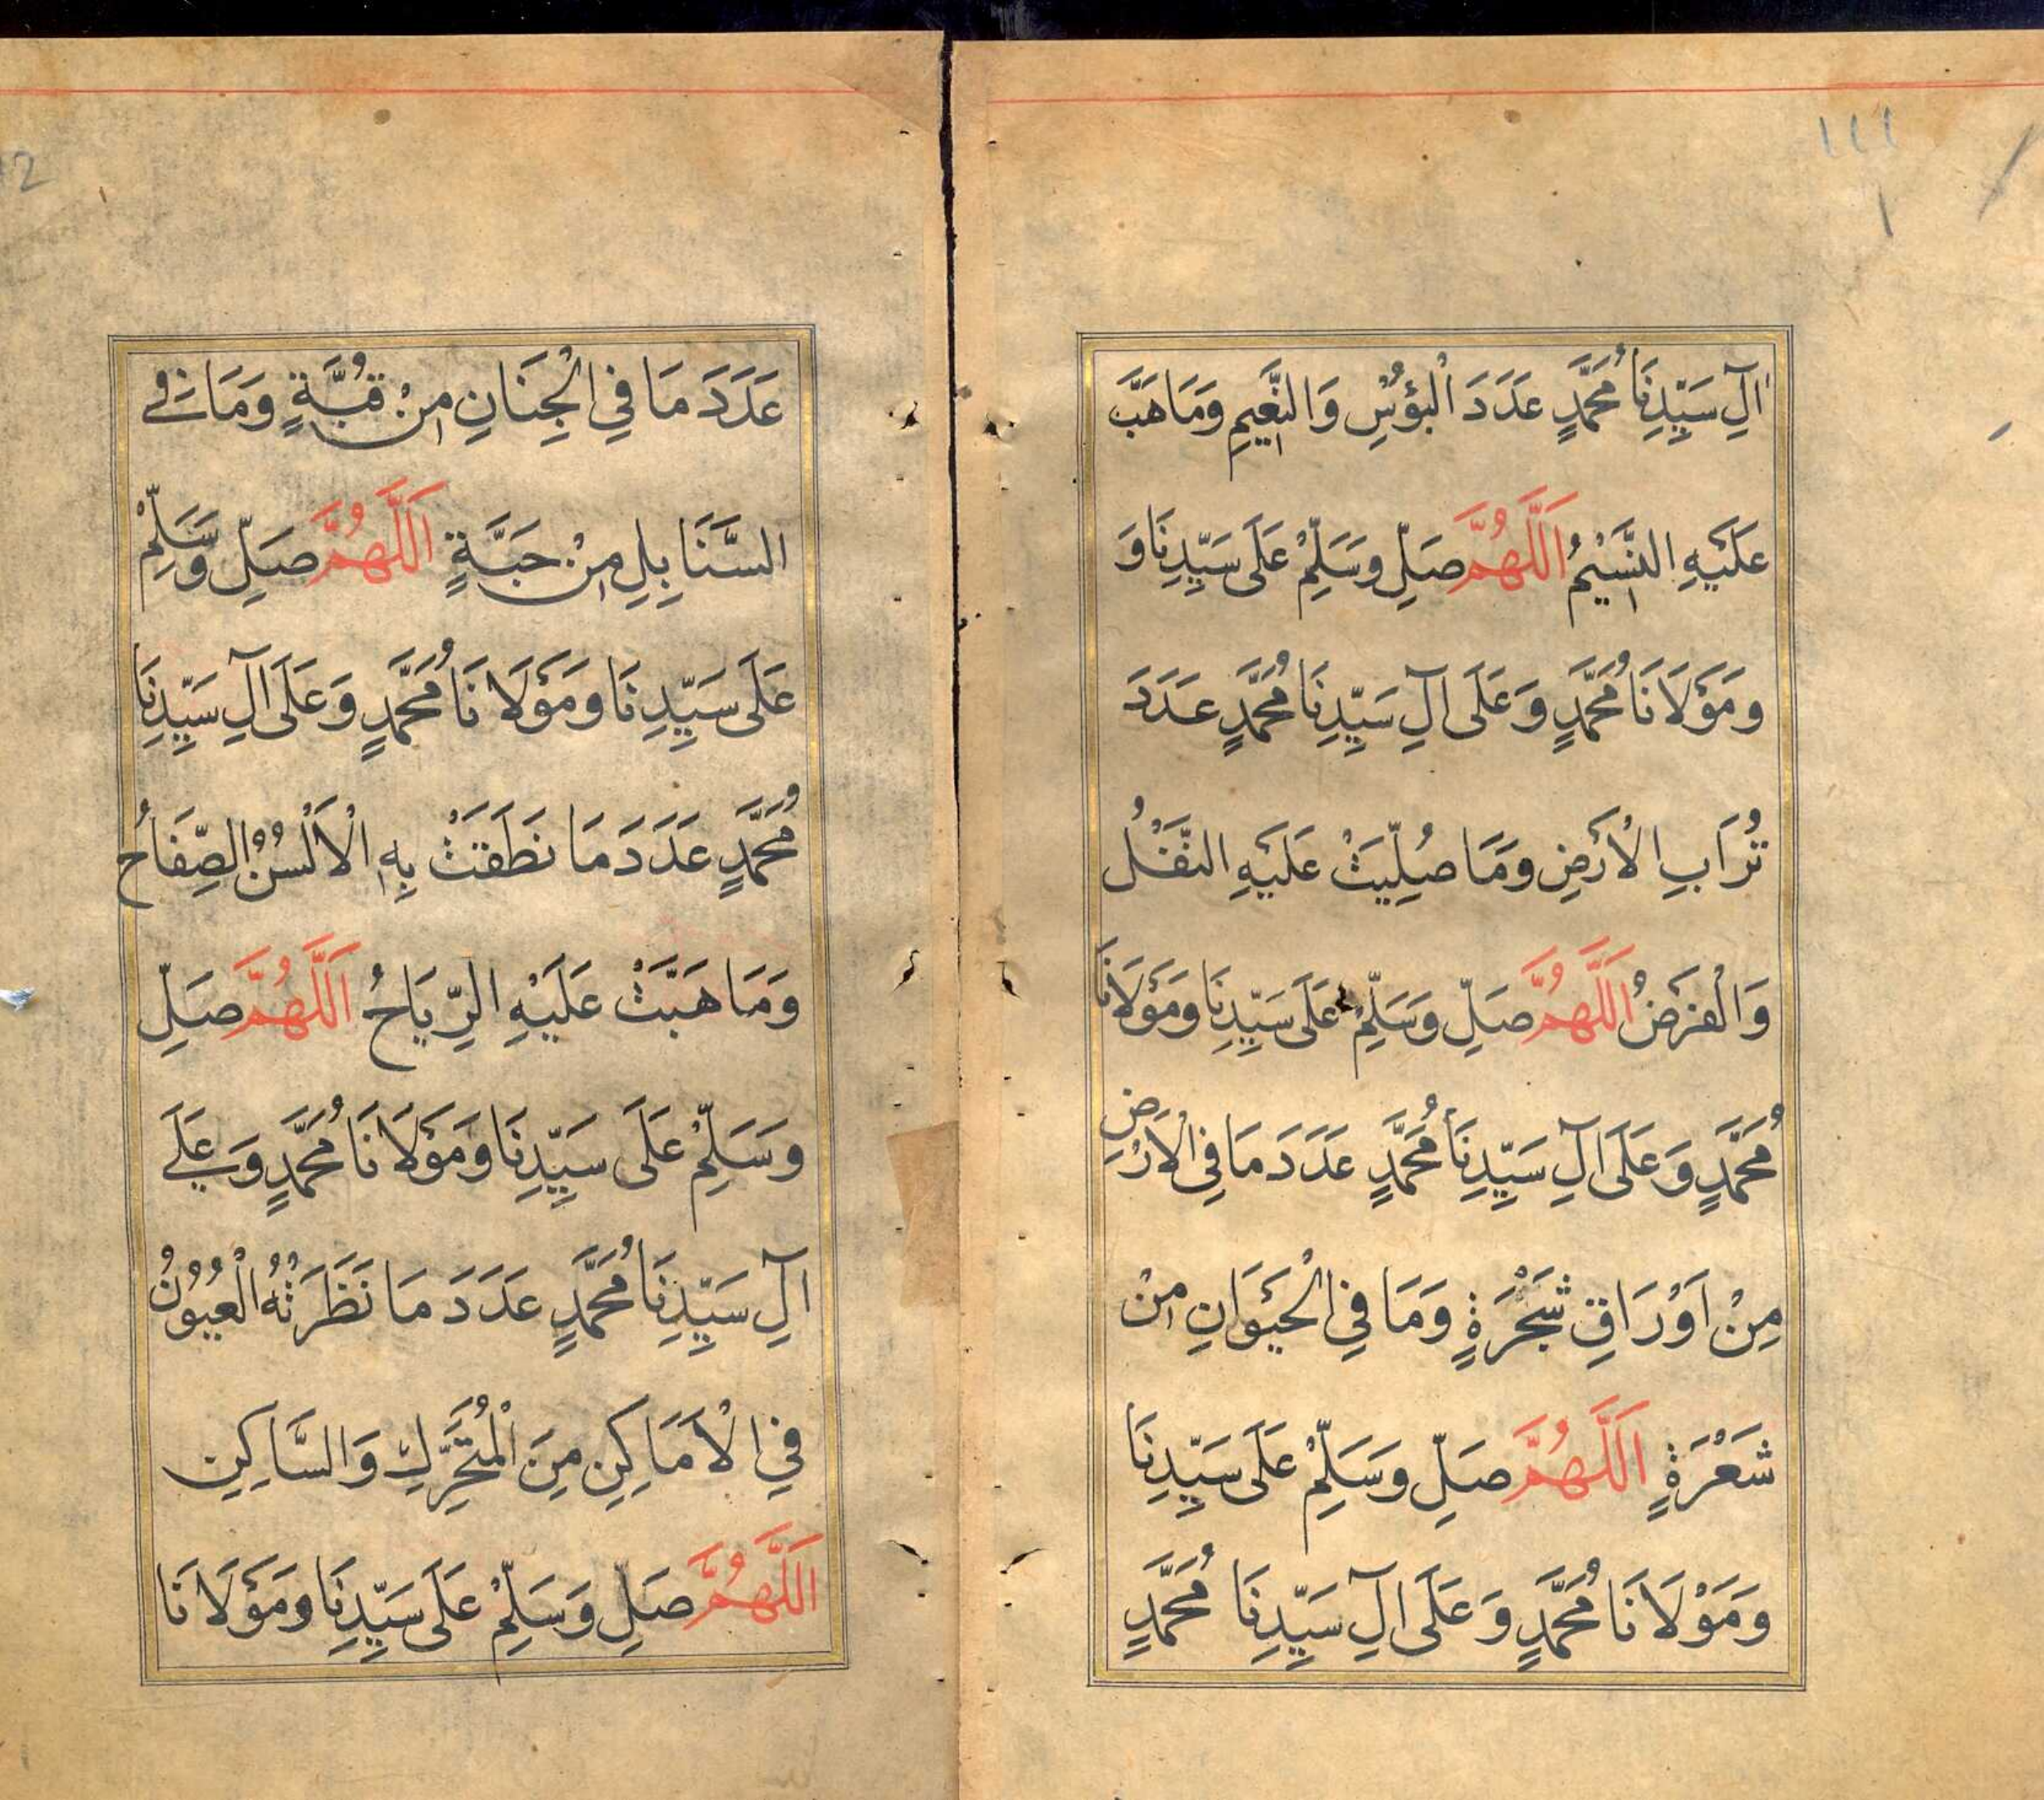 ١١١
١
اٰلِ سَيِّدِنَا مُحَمَّدٍ عَدَدَ الْبُؤْسِ وَالنَّعِيمِ وَمَا هَبَّ
عَلَيْهِ النَّسِيْمُ اَللّٰهُمَّ صَلِّ وَسَلِّمْ عَلَى سَيِّدِنَا وَ
وَمَوْلَانَا مُحَمَّدٍ وَعَلَى اٰلِ سَيِّدِنَا مُحَمَّدٍ عَدَدَ
تُرَابِ الْاَرْضِ وَمَا صُلِّيَتْ عَلَيْهِ النَّفْلُ
وَالْفَرْضُ اَللّٰهُمَّ صَلِّ وَسَلِّمْ عَلَى سَيِّدِنَا وَمَوْلَانَا
مُحَمَّدٍ وَعَلَى اٰلِ سَيِّدِنَا مُحَمَّدٍ عَدَدَ مَا فِي الْاَرْضِ
مِنْ اَوْرَاقِ شَجَرَةٍ وَمَا فِي الْحَيَوَانِ مِنْ
شَعْرَةٍ اَللّٰهُمَّ صَلِّ وَسَلِّمْ عَلَى سَيِّدِنَا
وَمَوْلَانَا مُحَمَّدٍ وَعَلَى اٰلِ سَيِّدِنَا مُحَمَّدٍ
عَدَدَ مَا فِي الْجِنَانِ مِنْ قُبَّةٍ وَمَا فِي
السَّنَابِلِ مِنْ حَبَّةٍ اَللّٰهُمَّ صَلِّ وَسَلِّمْ
عَلَى سَيِّدِنَا وَمَوْلَانَا مُحَمَّدٍ وَعَلَى اٰلِ سَيِّدِنَا
مُحَمَّدٍ عَدَدَ مَا نَطَقَتْ بِهِ الْاَلْسُنُ الصِّفَاحُ
وَمَا هَبَّتْ عَلَيْهِ الرِّيَاحُ اَللّٰهُمَّ صَلِّ
وَسَلِّمْ عَلَى سَيِّدِنَا وَمَوْلَانَا مُحَمَّدٍ وَعَلٰى
اٰلِ سَيِّدِنَا مُحَمَّدٍ عَدَدَ مَا نَظَرَتْهُ الْعُيُوْنُ
فِي الْاَمَاكِنِ مِنَ الْمُتَحَرِّكِ وَالسَّاكِنِ
اَللّٰهُمَّ صَلِّ وَسَلِّمْ عَلَى سَيِّدِنَا وَمَوْلَانَا